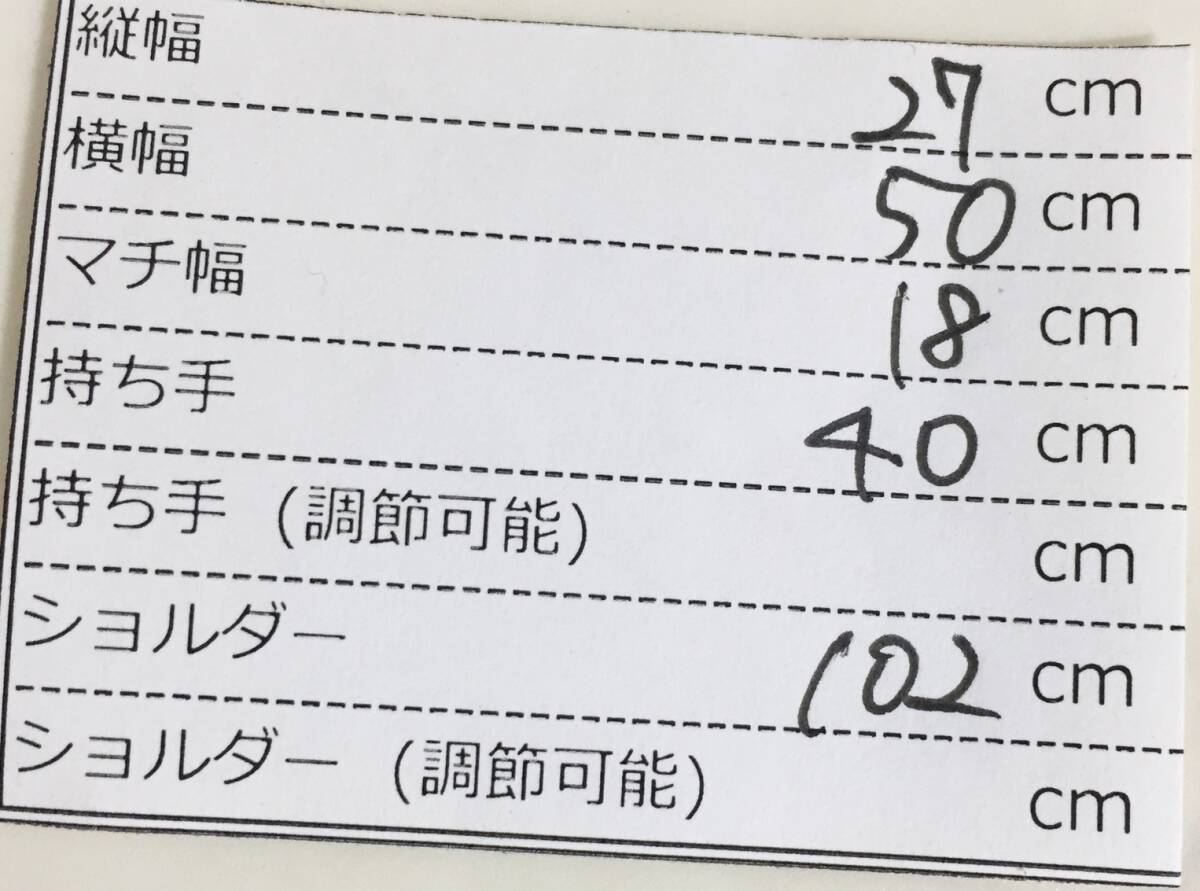 縦幅 27 cm
横幅 50 cm
マチ幅 18 cm
持ち手 40 cm
持ち手 (調節可能) cm
ショルダー 102 cm
ショルダー (調節可能) cm